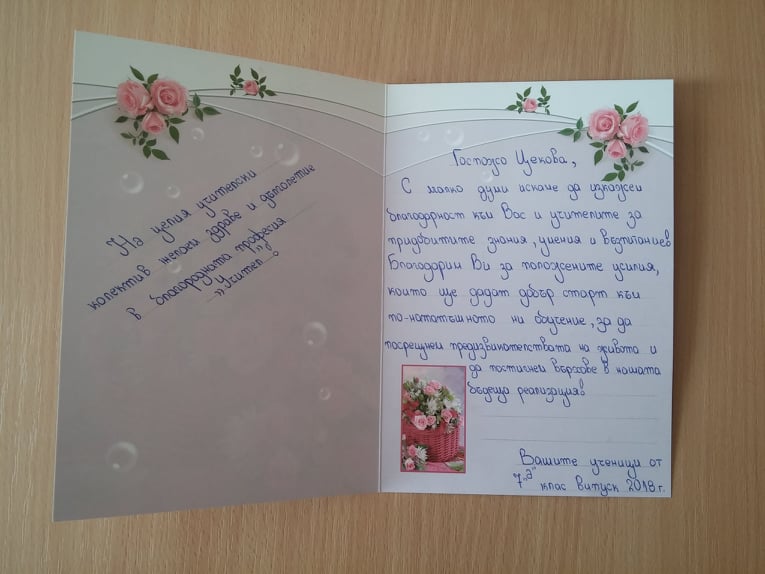 На целия учителски
колектив желаем здраве и дълголетие
в благородната професия
„Учител“.
Госпожо Цекова,
С малко думи искаме да изкажем
благодарност към Вас и учителите за
придобитите знания, умения и възпитание.
Благодарим Ви за положените усилия,
които ще дадат добър старт към
по-нататъшното ни обучение, за да
посрещнем предизвикателствата на живота и
да постигнем върхове в нашата
бъдеща реализация.
Вашите ученици от
7„а“ клас Випуск 2018 г.